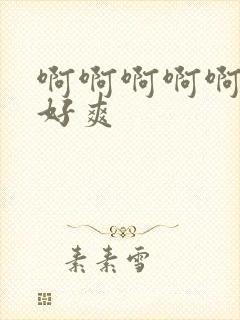 啊啊啊啊啊
好爽
素素雪